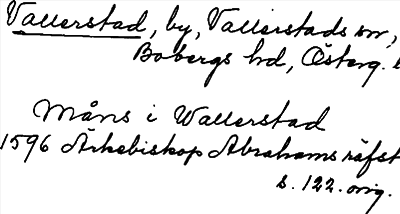 Vallerstad, by, Vallerstads sn,
Bobergs hd, Österg.
Måns i Wallerstad
1596 Ärkebiskop Abrahams räfst
s. 122. orig.